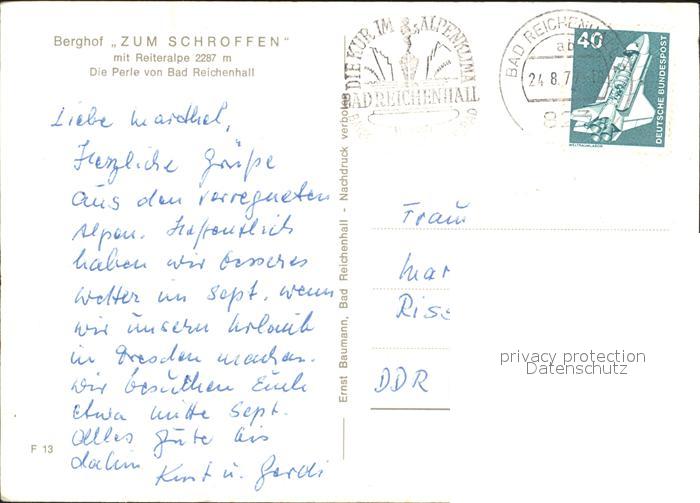 Berghof „ZUM SCHROFFEN"
mit Reiteralpe 2287 m
Die Perle von Bad Reichenhall
Liebe Marthel,
Herzliche Grüße
aus den verregneten
Alpen. Hoffentlich
haben wir besseres
Wetter im Sept. wenn
wir unsern Urlaub
in Dresden machen.
Wir besuchen Euch
etwa mitte Sept.
Alles Gute bis
dahin Kurt u. Gerdi
F 13
Ernst Baumann, Bad Reichenhall - Nachdruck verboten
DIE KUR IM ALPENKLIMA
BAD REICHENHALL
BAD REICHENH
ab
24.8.7
40
DEUTSCHE BUNDESPOST
WELTRAUMLABOR
Frau
Mar
Ries
DDR
privacy protection
Datenschutz